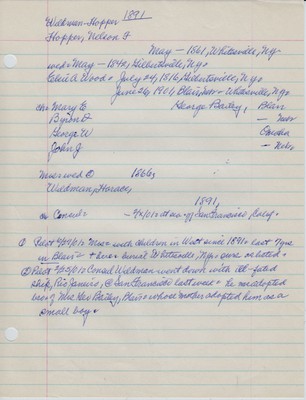 Wildman-Hopper 1891
Hopper, Nelson F
May - 1861, Whitesville, N.Y.
wed: May - 1842, Gilbertsville, N.Y.
A. Wood July 24, 1816, Gilbertsville, N.Y.
June 26, 1901, Blair, Whitesville, N.Y.
ch: Mary E George Bailey, Blair
Byron D
George W Omaha
John J
wed 1866
Wildman, Horace,
1891,
ch Consul - 2/ /01 at San Francisco, Calif.
① Pilot with children in West since 1891. Last 7 yrs
in Blair burial Whitesville, N.Y.
② Pilot Consul Wildman went down with ill-fated
ship, Rio Janeiro, @ San Francisco last week. he was adopted
bro of Mrs. Geo Bailey, Blair whose mother adopted him as a
small boy